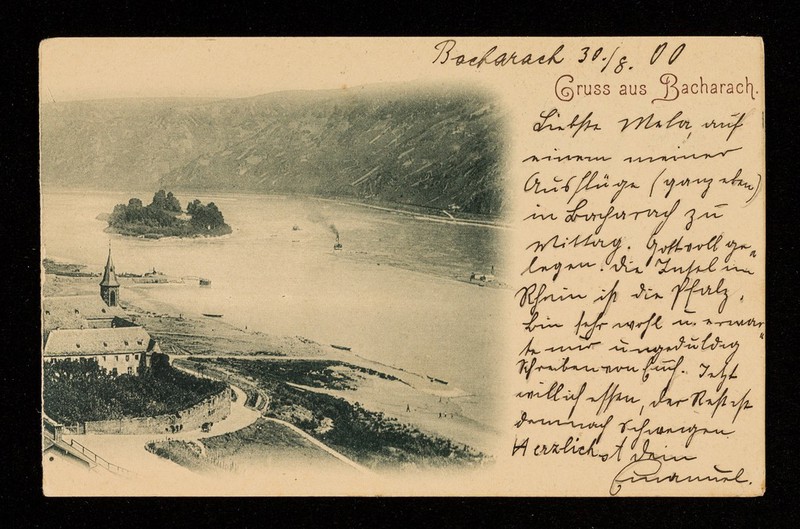 Bacharach 30./8. 00
Gruss aus Bacharach.
Liebste Mela, auf
einem meiner
Ausflüge (ganz eben)
in Bacharach zu
Mittag. Gottvoll ge-
legen. Die Insel im
Rhein ist die Pfalz.
Bin sehr wohl u. erwar-
te nur ungeduldig
Schreiben von Euch. Jetzt
will ich essen, der Rest ist
demnach Schweigen
Herzlichst Dein
Emanuel.